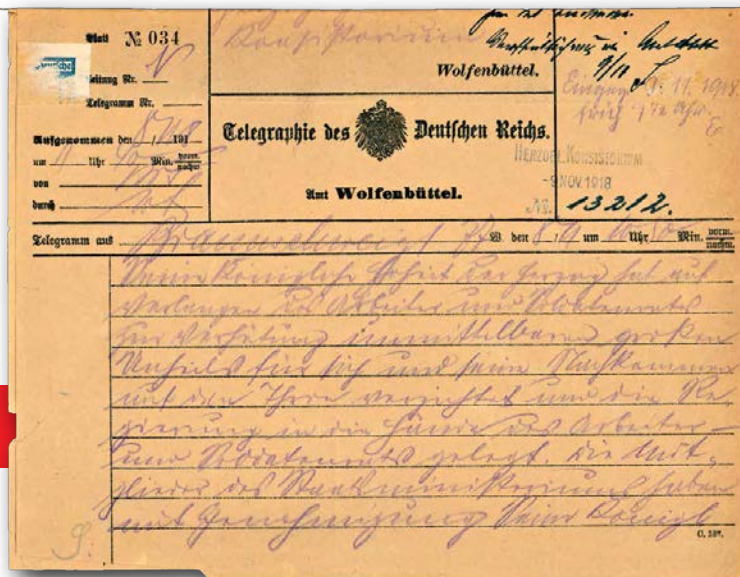 Blatt № 034
Konsistorium
Wolfenbüttel.
Leitung Nr.
Telegramm Nr.
Aufgenommen den 8/11 1918
um 11 Uhr Min. vorm. nachm.
von
durch
Telegraphie des Deutschen Reichs.
Amt Wolfenbüttel.
Eingeg. 9. 11. 1918.
früh Uhr.
9/11
HERZOGL. KONSISTORIUM
-9. NOV. 1918
No. 13212.
Telegramm aus Braunschweig 77 W. den 8/11 um 10 Uhr 50 Min. vorm. nachm.
Seine Königliche Hoheit der Herzog hat auf
Verlangen des Arbeiter und Soldatenrates
zur Verhütung unmittelbaren großen
Unheils für sich und seine Nachkommen
auf den Thron verzichtet und die Re-
gierung in die Hände des Arbeiter-
und Soldatenrats gelegt. die Mit-
glieder des Staatsministeriums haben
mit Genehmigung Seiner Königl
C. 187.